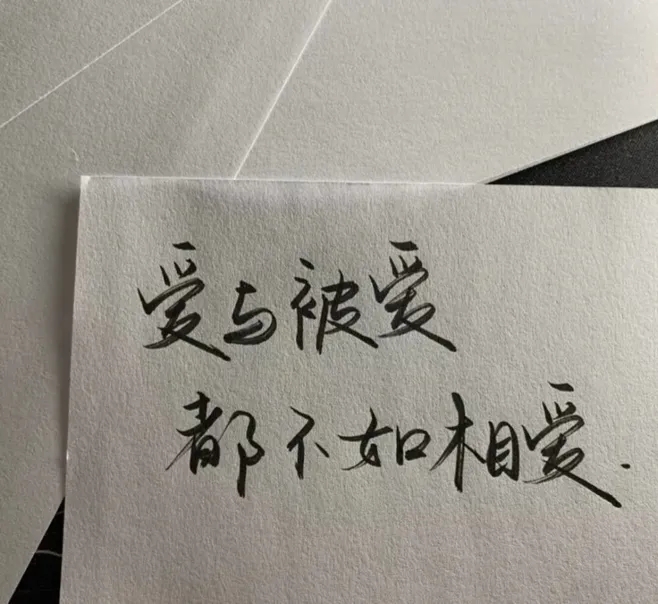 爱与被爱
都不如相爱.